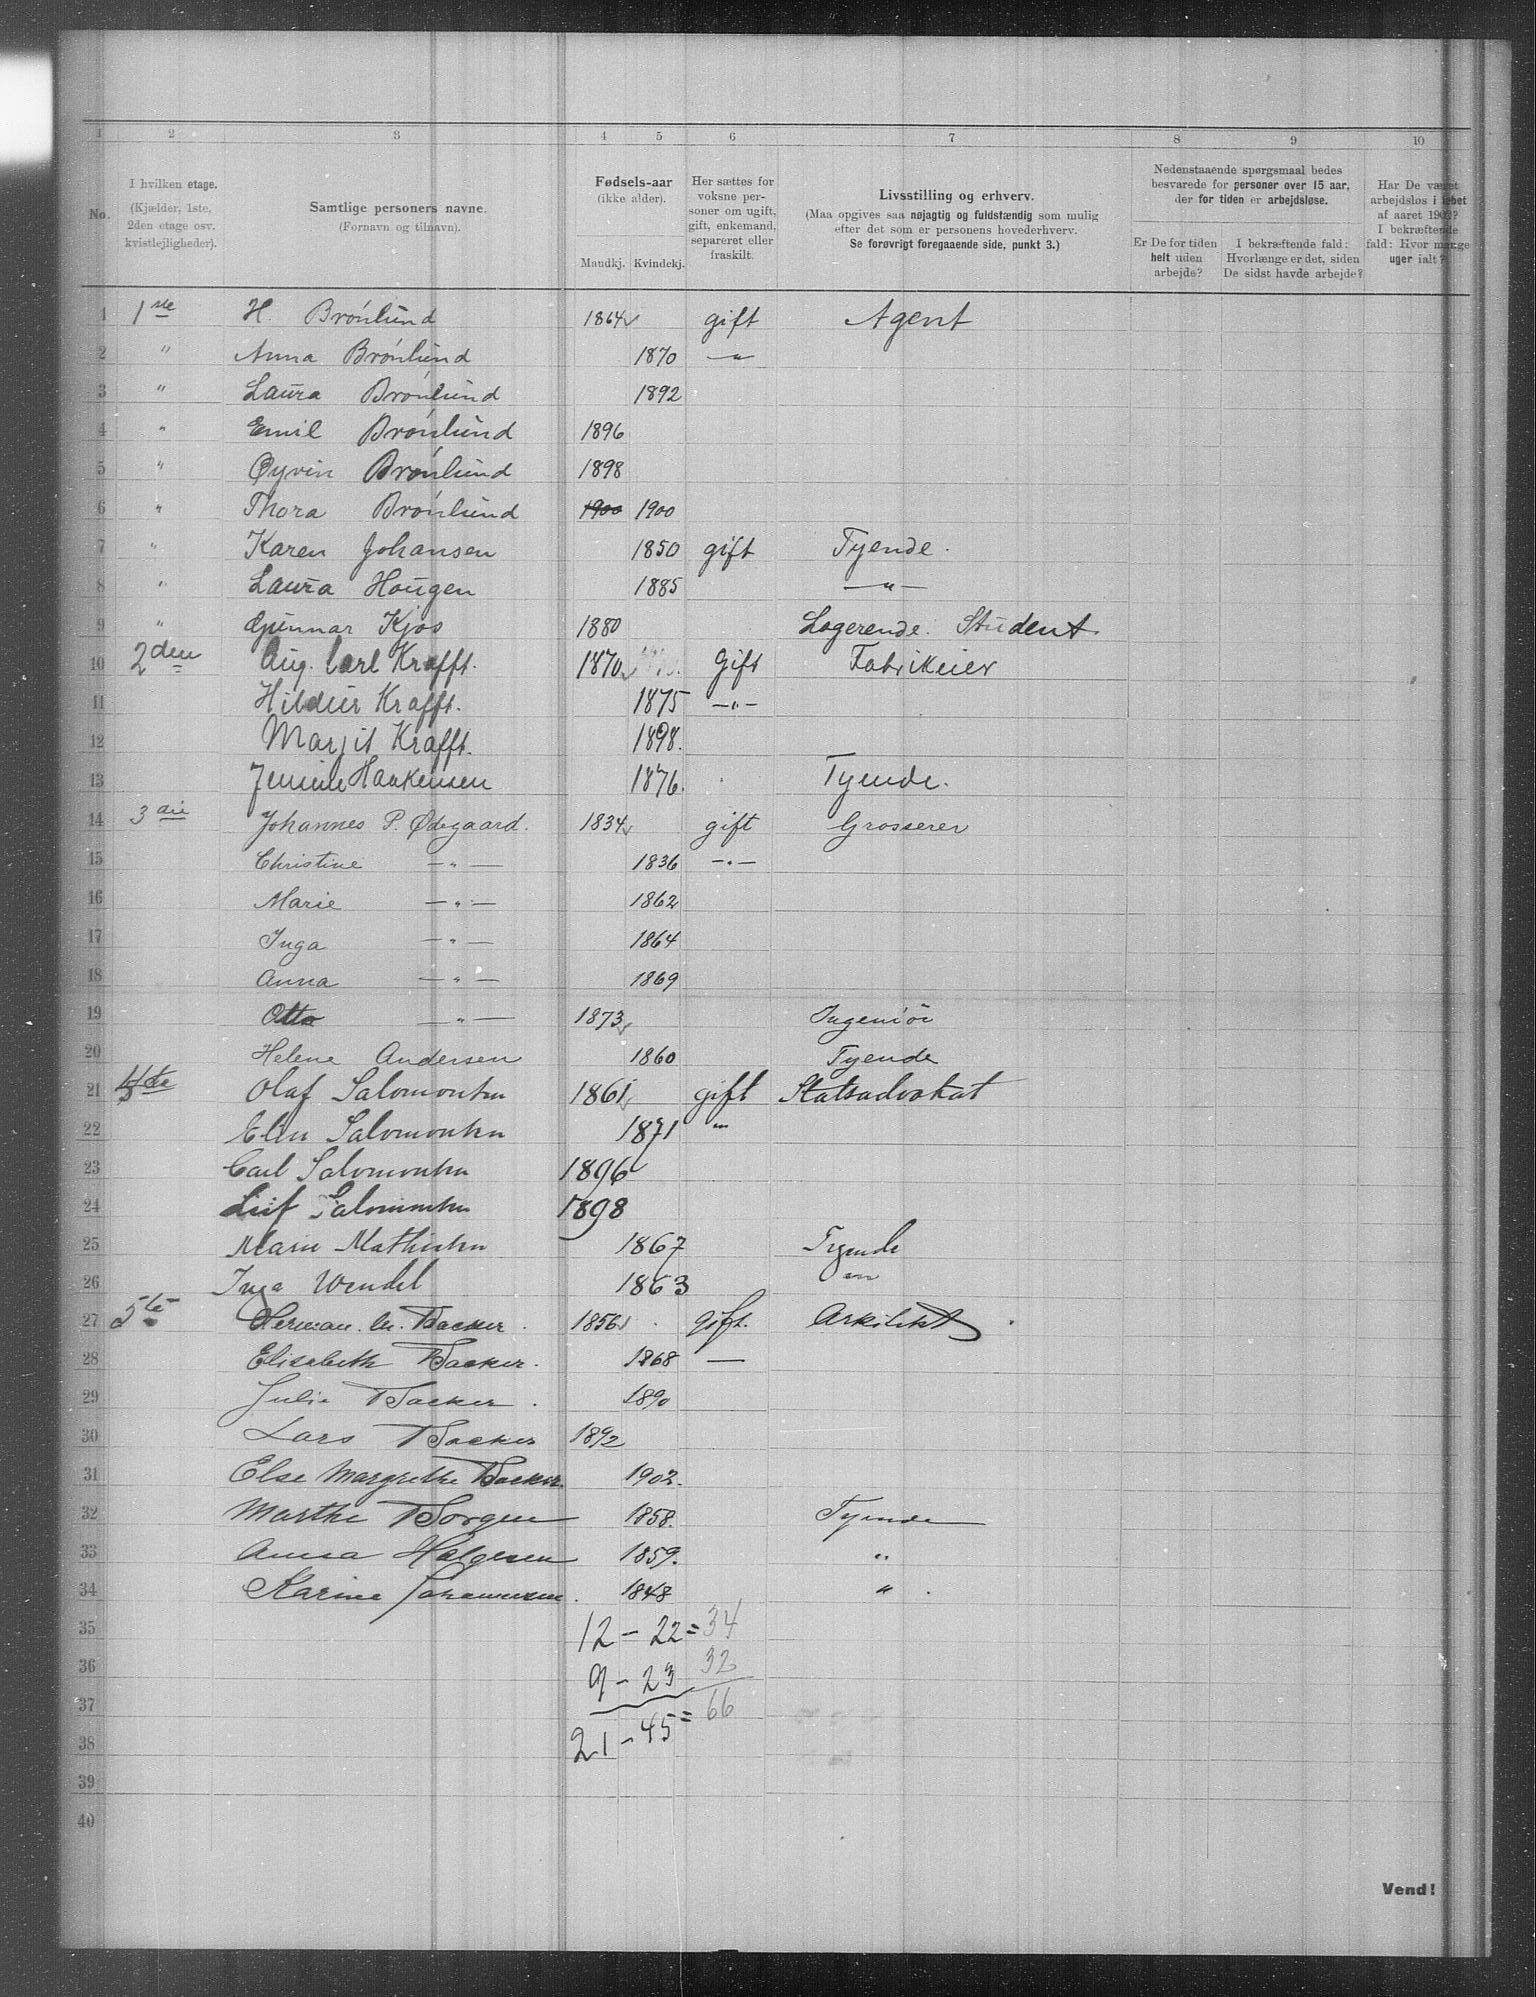 1 2 3 4 5 6 7 8 9 10
No.
I hvilken etage.
(Kjælder, 1ste,
2den etage osv.
kvistlejligheder).
Samtlige personers navne.
(Fornavn og tilnavn).
Fødsels-aar
(ikke alder).
Mandkj. Kvindekj.
Her sættes for
voksne per-
soner om ugift,
gift, enkemand,
separeret eller
fraskilt.
Livsstilling og erhverv.
(Maa opgives saa nøjagtig og fuldstændig som mulig
efter det som er personens hovederhverv.
Se forøvrigt foregaaende side, punkt 3.)
Nedenstaaende spørgsmaal bedes
besvarede for personer over 15 aar,
der for tiden er arbejdsløse.
Er De for tiden
helt uden
arbejde?
I bekræftende fald:
Hvorlænge er det, siden
De sidst havde arbejde?
Har De været
arbejdsløs i løbet
af aaret 1902?
I bekræftende
fald: Hvor mange
uger ialt?
1 1ste H. Brónlund 1864 gift Agent
2 " Anna Brónlund 1870 —"—
3 " Laura Brónlund 1892
4 " Emil Brónlund 1896
5 " Øyvin Brónlund 1898
6 " Thora Brónlund 1900 1900
7 " Karen Johansen 1850 gift Tyende.
8 " Laura Hougen 1885 —"—
9 " Gunnar Kjos 1880 Logerende. Student
10 2den Aug. Carl Krafft. 1870 Gift Fabrikeier
11 Hildur Krafft. 1875 —"—
12 Margit Krafft. 1898.
13 Haakensen 1876. Tyende.
14 3die Johannes P. Ødegaard. 1834 gift Grosserer
15 Christine —"— 1836 —"—
16 Marie —"— 1862
17 Inga —"— 1864
18 Anna —"— 1869
19 Otto —"— 1873 Ingeniör
20 Helene Andersen 1860 Tyende
21 4de Olaf Salomonsen 1861 gift Statsadvokat
22 Elen Salomonsen 1871 "
23 Carl Salomonsen 1896
24 Leif Salomonsen 1898
25 Marie Mathisen 1867 Tyende
26 Inga Wendel 1863 "
27 5te Herman. M. Backer. 1856 gift. Arkitekt
28 Elisabeth Backer. 1868 —
29 Julie Backer. 1890
30 Lars Backer 1892
31 Else Margrethe Backer. 1902.
32 Marthe Borgen 1858. Tyende
33 Anna Halgesen 1859. "
34 Karine Johannesen. 1848 "
35 12 - 22 = 34
36 9 - 23 32
37 21 - 45 = 66
38
39
40
Vend!